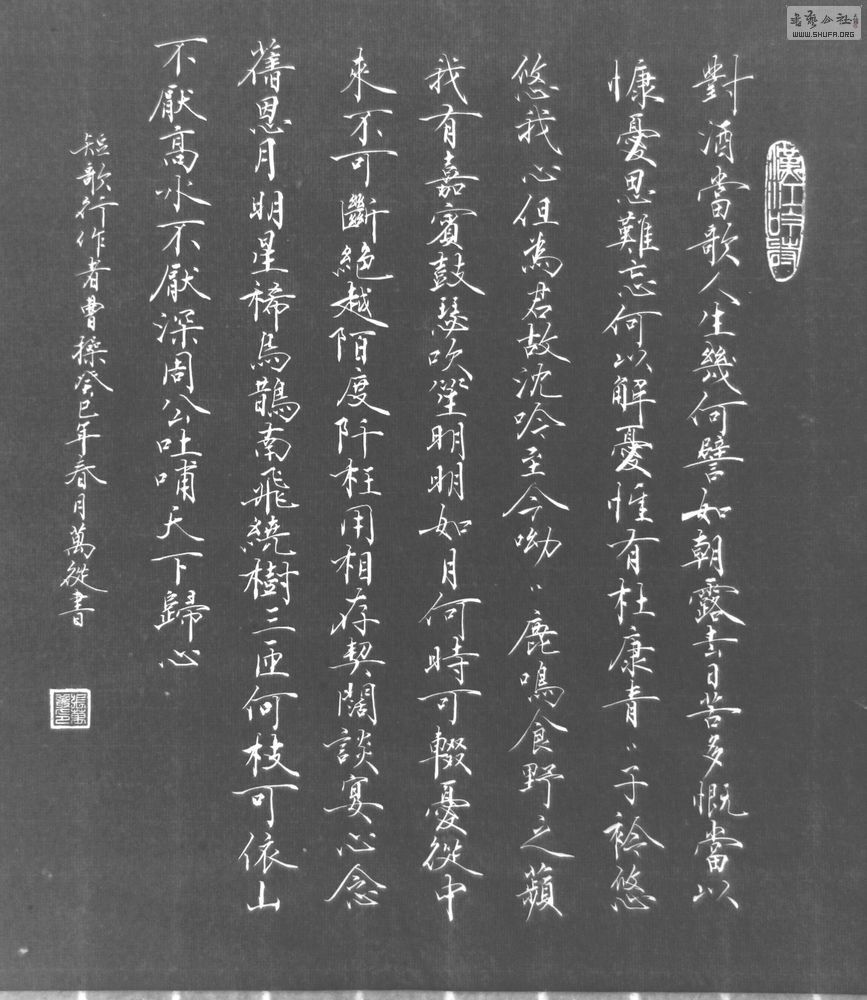 漢江吟詩
對酒當歌人生幾何譬如朝露去日苦多慨當以
慷憂思難忘何以解憂惟有杜康青〻子衿悠
悠我心但為君故沈吟至今呦〻鹿鳴食野之蘋
我有嘉賓鼓瑟吹笙明明如月何時可輟憂從中
來不可斷絕越陌度阡枉用相存契闊談宴心念
舊恩月明星稀烏鵲南飛繞樹三匝何枝可依山
不厭高水不厭深周公吐哺天下歸心
短歌行作者曹操癸巳年春月萬從書
書藝公社
WWW.SHUFA.ORG